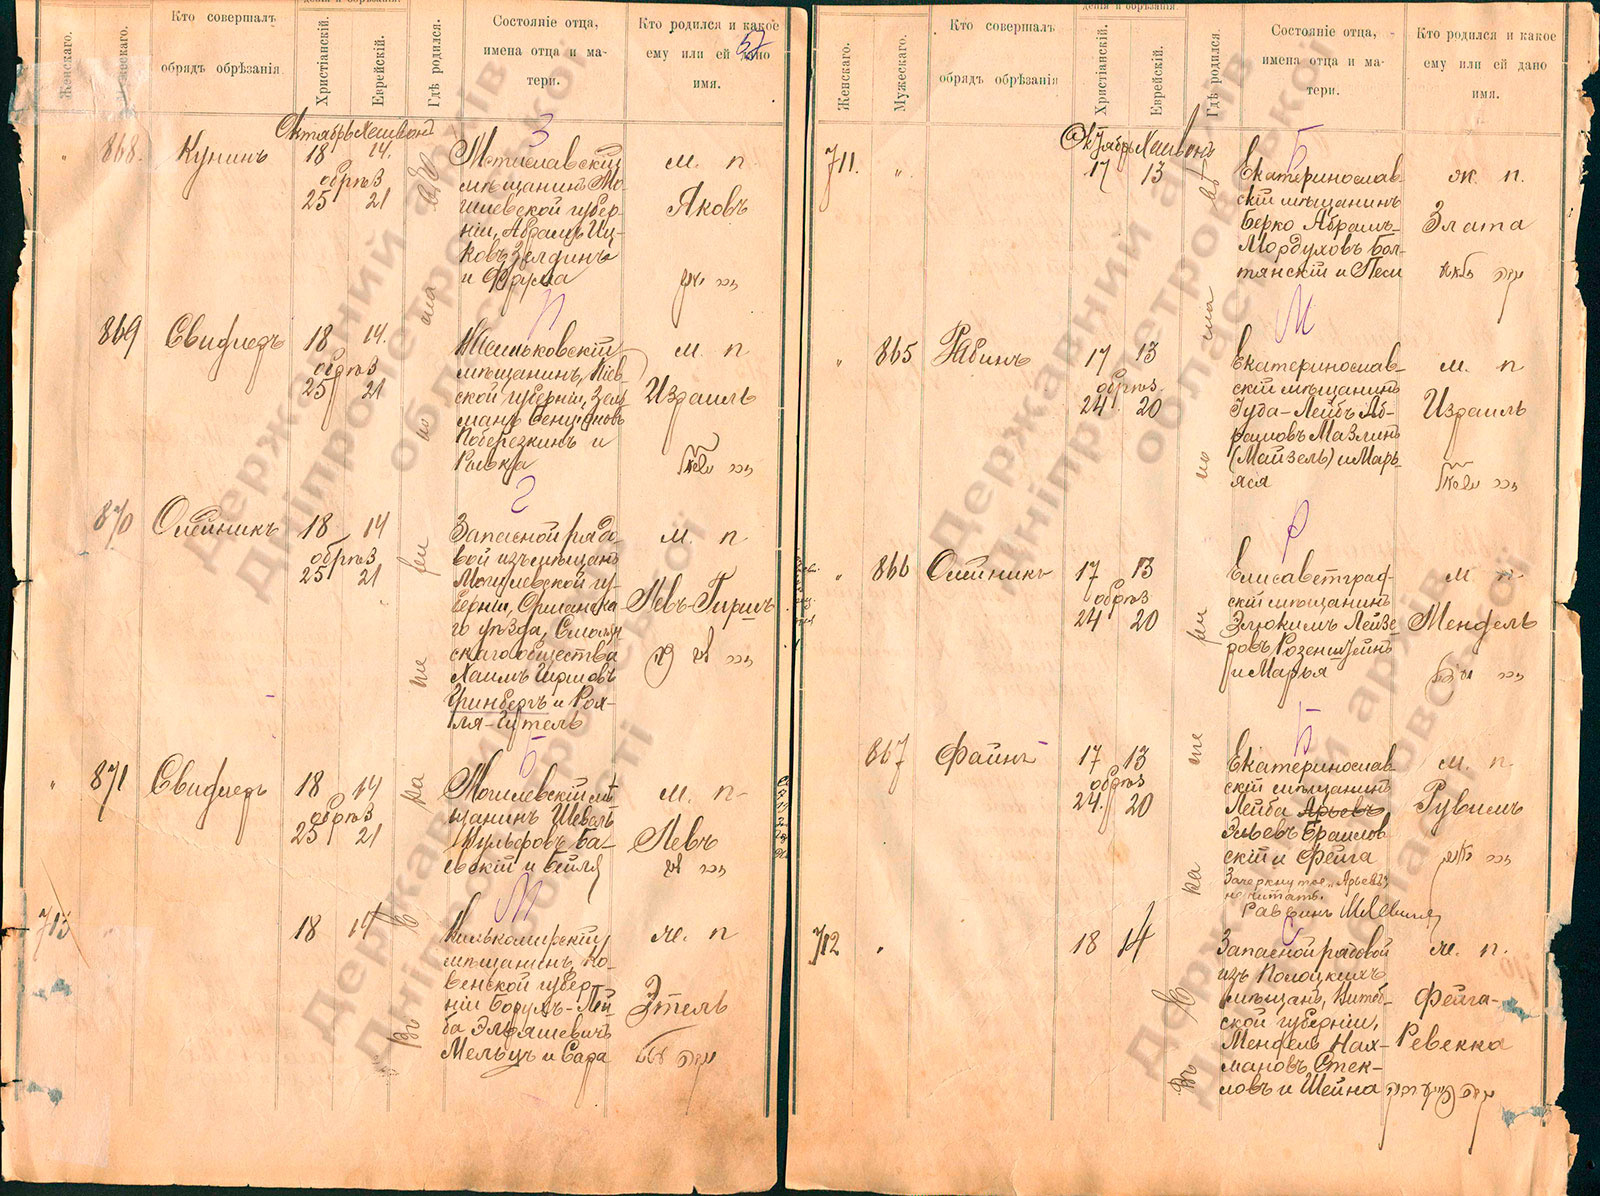 Женскаго.
Мужескаго.
Кто совершалъ
обрядъ обрѣзанія
Христіанскій.
Еврейскій.
Гдѣ родился.
Состояніе отца,
имена отца и ма-
тери.
Кто родился и какое
ему или ей дано
имя.
57
Октябрь Хешвонъ
868.
Кунинъ
18 14.
обрѣз
25 21
З
Мстиславскій
мѣщанинъ Мо-
гилевской губер-
ніи, Абрамъ Иц-
ковъ Зелдинъ
и Фрума
м. п.
Яковъ
869
Свифледъ
18 14.
обрѣз
25 21
П
мѣщанинъ, Кіев-
ской губерніи, Зел-
манъ Бенціоновъ
Поберезкинъ и
Рывка
м. п
Израиль
870
Олейникъ
18 14
обрѣз
25 21
Г
Запасной рядо-
вой изъ мѣщанъ
Могилевской гу-
берніи, Оршанска-
го уѣзда, Смолян-
скаго общества
Хаимъ Гиршовъ
Гринбергъ и Рох-
ля-Гутель
м. п
Левъ-Гиршъ
871
Свифледъ
18 14
обрѣз
25 21
Б
Могилевскій мѣ-
щанинъ Шевель
Вульфовъ Ба-
евскій и Бейля
м. п
Левъ
713
18 14
М
Вилькомирскій
мѣщанинъ, Ко-
венской губер-
ніи Борухъ-Лей-
ба Эльяшевичъ
Мельцъ и Сара
ж. п
Этель
Въ Екатеринославѣ
Женскаго.
Мужескаго.
Кто совершалъ
обрядъ обрѣзанія
Христіанскій.
Еврейскій.
Гдѣ родился.
Состояніе отца,
имена отца и ма-
тери.
Кто родился и какое
ему или ей дано
имя.
Октябрь Хешвонъ
711.
17 13
Б
Екатеринослав-
скій мѣщанинъ
Берко Абрамъ-
Мордуховъ Бол-
тянскій и Песи
ж. п.
Злата
865
Рабинъ
17 13
обрѣз.
24. 20
М
Екатеринослав-
скій мѣщанинъ
Іуда-Лейбъ Аб-
рамовъ Мазлинъ
(Майзель) и Марь-
яся
м. п
Израиль
866
Олейникъ
17 13
обрѣз
24 20
Р
Елисаветград-
скій мѣщанинъ
Элюкимъ Лейзе-
ровъ Розенштейнъ
и Марья
м п
Мендель
867
Файнъ
17 13
обрѣз
24. 20
Б
Екатеринослав-
скій мѣщанинъ
Лейба Арьевъ
Эльевъ Браилов
скій и Фейга
Зачеркнутое „Арьевъ"
не читать.
Раввинъ
м. п.
Рувимъ
712
18 14
С
Запасной рядовой
изъ Полоцкихъ
мѣщанъ, Витеб-
ской губерніи,
Мендель Нах-
мановъ Стек-
ловъ и Шейна
ж. п.
Фейга-
Ревекка
Въ Екатеринославѣ
Державний архів
Дніпропетровської
області